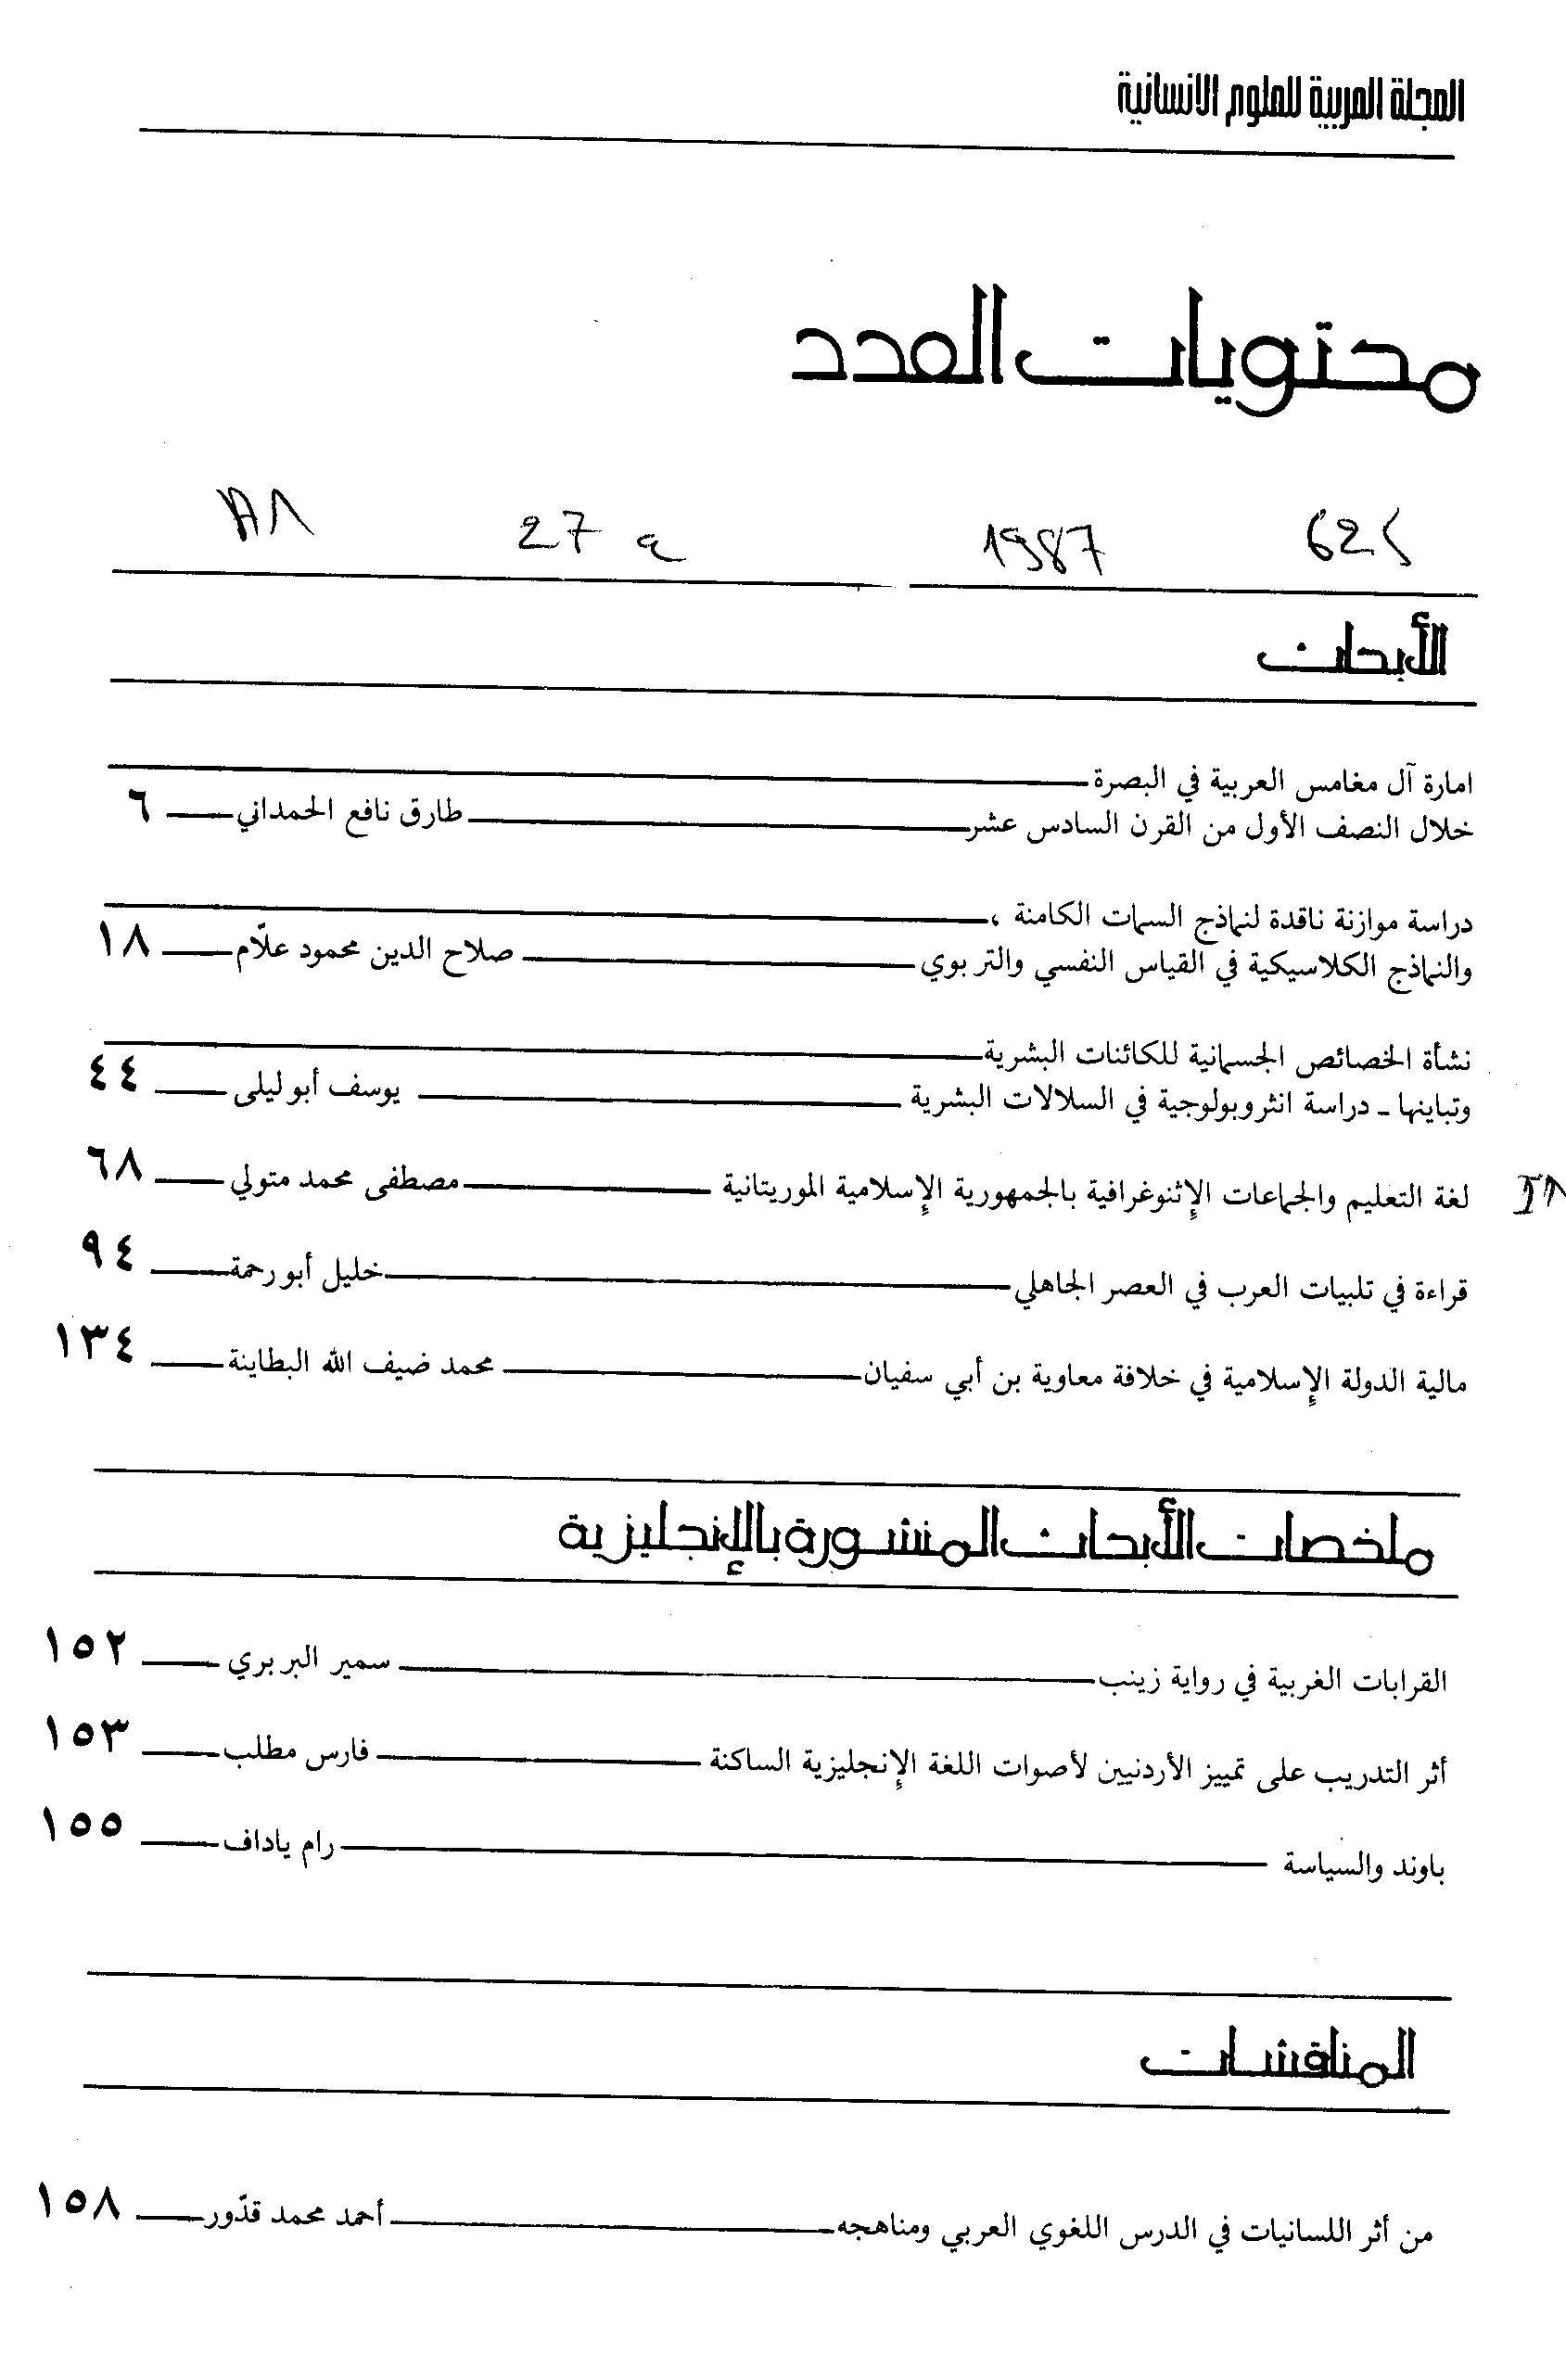 المجلة العربية للعلوم الانسانية
محتويات العدد
1987 27
الأبحاث
امارة آل مغامس العربية في البصرة
خلال النصف الأول من القرن السادس عشر طارق نافع الحمداني ٦
دراسة موازنة ناقدة لنماذج السمات الكامنة ،
والنماذج الكلاسيكية في القياس النفسي والتربوي صلاح الدين محمود علّام ١٨
نشأة الخصائص الجسمانية للكائنات البشرية
وتباينها ـ دراسة انثروبولوجية في السلالات البشرية يوسف أبو ليلى ٤٤
لغة التعليم والجماعات الإثنوغرافية بالجمهورية الإسلامية الموريتانية مصطفى محمد متولي ٦٨
قراءة في تلبيات العرب في العصر الجاهلي خليل أبو رحمة ٩٤
مالية الدولة الإسلامية في خلافة معاوية بن أبي سفيان محمد ضيف الله البطاينة ١٣٤
ملخصات الأبحاث المنشورة بالإنجليزية
القرابات الغربية في رواية زينب سمير البربري ١٥٢
أثر التدريب على تمييز الأردنيين لأصوات اللغة الإنجليزية الساكنة فارس مطلب ١٥٣
باوند والسياسة رام ياداف ١٥٥
المناقشات
من أثر اللسانيات في الدرس اللغوي العربي ومناهجه أحمد محمد قدّور ١٥٨